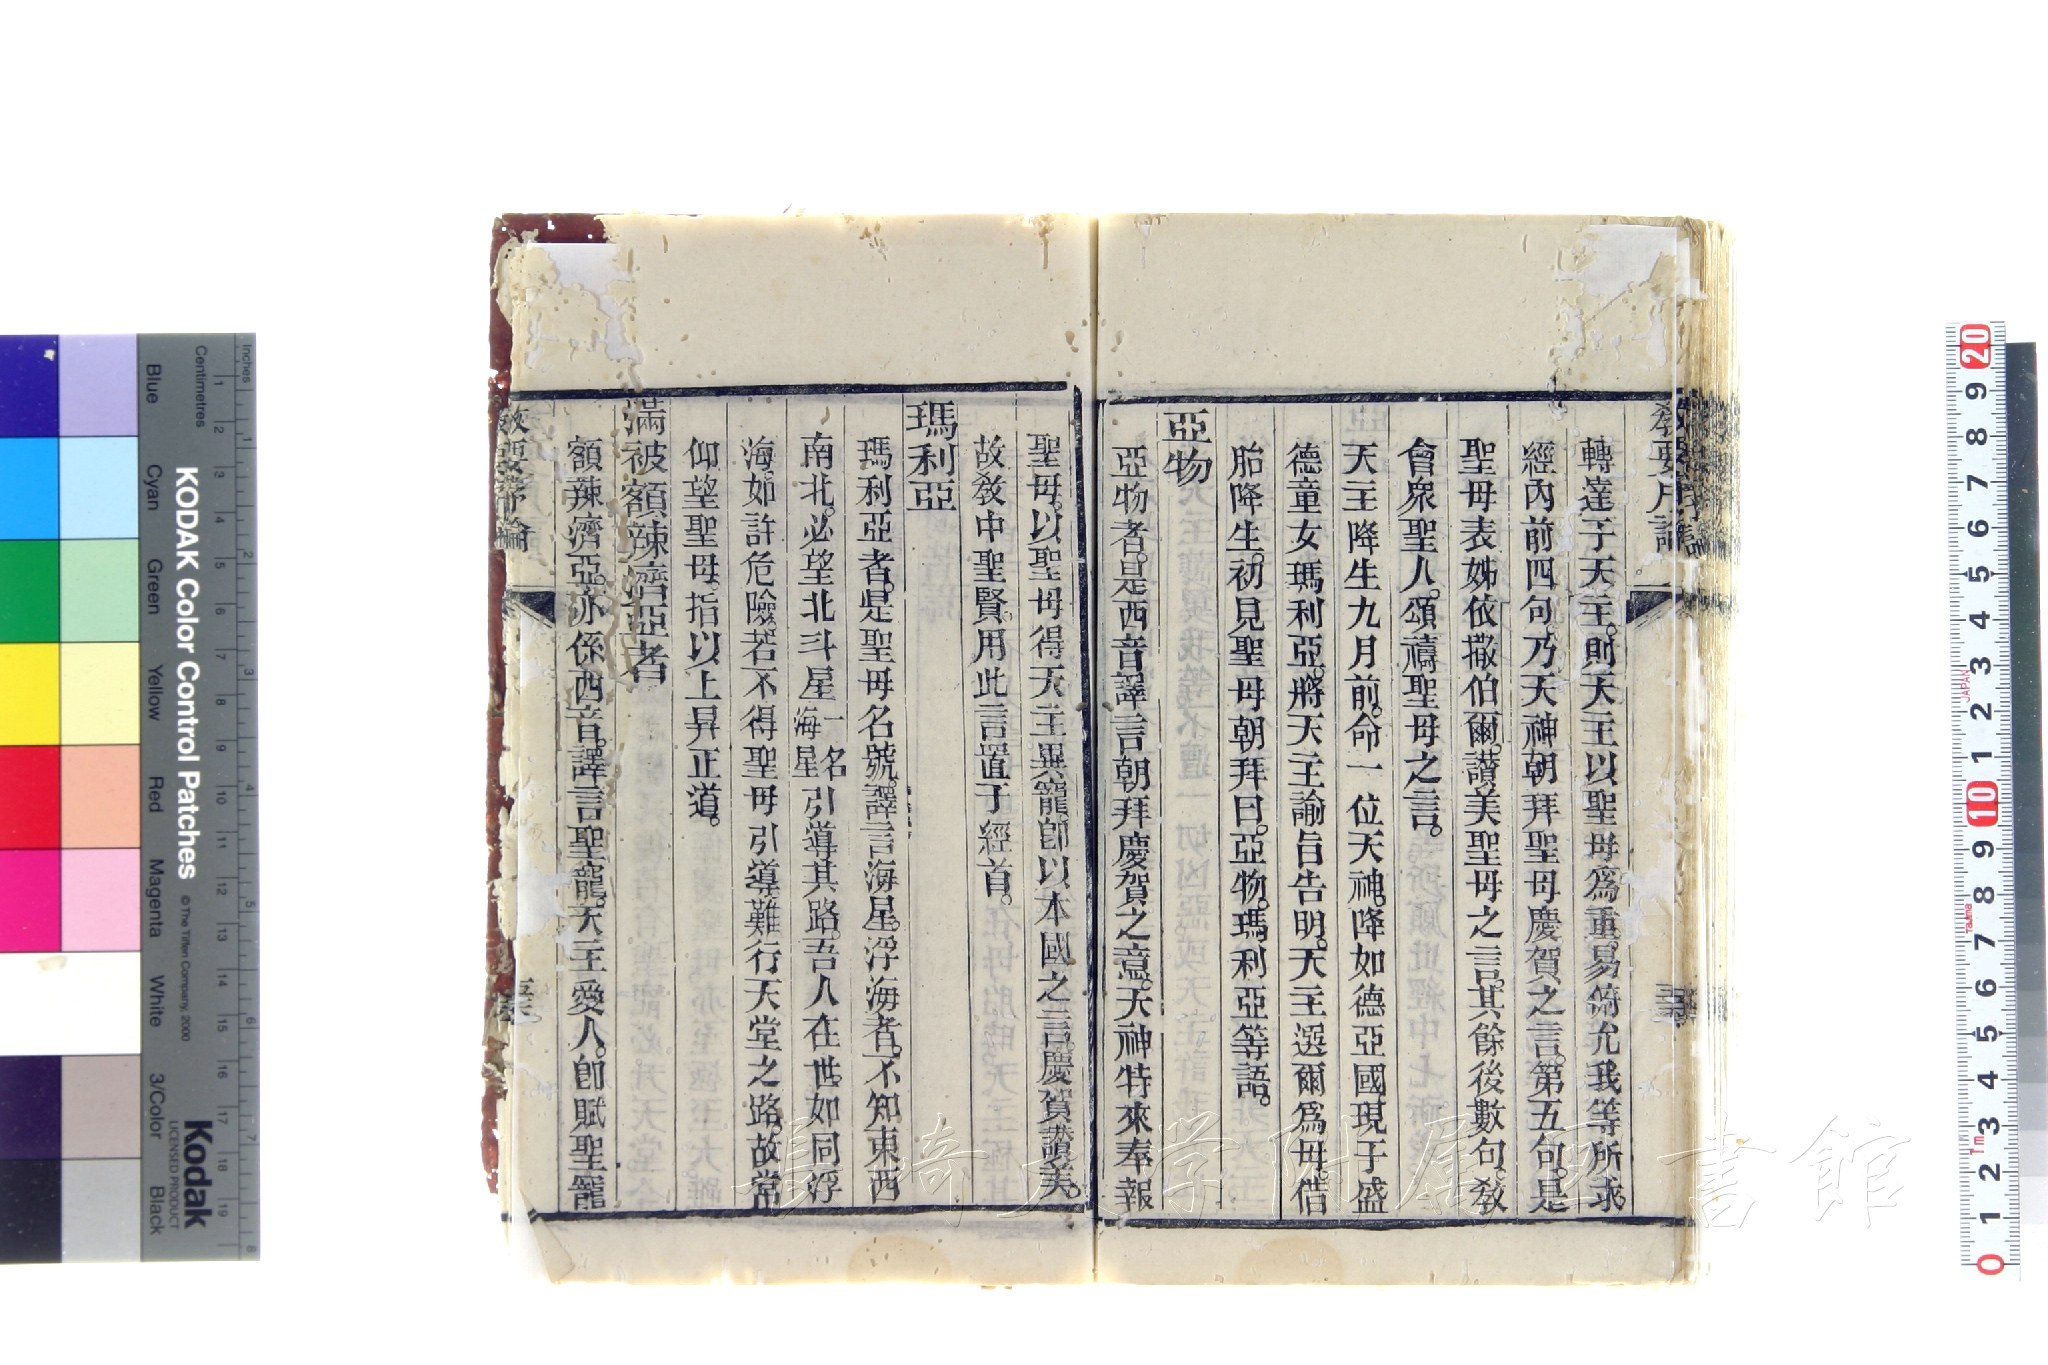 轉達于天主。則天主以聖母爲重。易俯允我等所求。
經內前四句。乃天神朝拜聖母慶賀之言。第五句。是
聖母表姊依撒伯爾。讃美聖母之言。其餘後數句。敎
會衆聖人。頌禱聖母之言。
天主降生九月前。命一位天神。降如德亞國。現于盛
德童女瑪利亞。將天主諭旨告明。天主選爾爲母。借
胎降生。初見聖母朝拜曰。亞物。瑪利亞等語。
亞物
亞物者。是西音。譯言朝拜慶賀之意。天神特來奉報
聖母。以聖母得天主異寵。卽以本國之言。慶賀讃美。
故敎中聖賢。用此言置于經首。
瑪利亞
瑪利亞者。是聖母名號。譯言海星。浮海者。不知東西
南北。必望北斗星一名海星引導其路。吾人在世。如同浮
海。如許危險。若不得聖母引導。難行天堂之路。故常
仰望聖母。指以上昇正道。
滿被額辣濟亞者
額辣濟亞。亦係西音。譯言聖寵。天主愛人。卽賦聖寵
KODAK Color Control Patches
© The Tiffen Company, 2000
Kodak
LICENSED PRODUCT
Inches
Centimetres
Blue
Cyan
Green
Yellow
Red
Magenta
White
3/Color
Black
長崎大学附属図書館